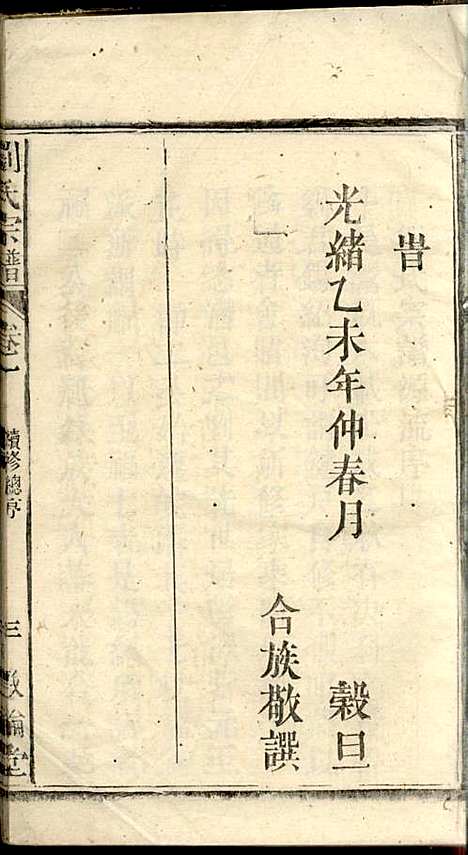 旹
光緒乙未年仲春月 穀旦
合族敬譔
劉氏宗譜 卷一 續修總序 三 敦倫堂